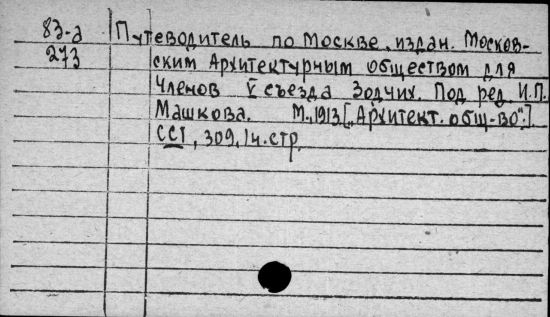 83-а Путеводитель по Москве, издан. Москов-
273 ским Архитектурным обществом для
членов V съезда Зодчих. Под ред И.П.
Машкова. М., 1913 [„Архитект. общ-во“.]
CCI, 309, 1ч. стр.